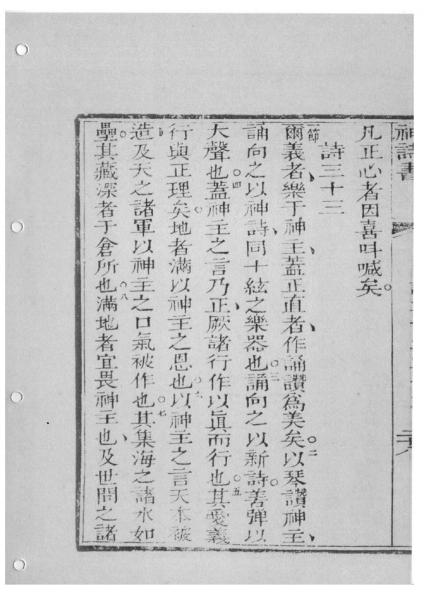 神詩書
凡正心者因喜呌喊矣。
詩三十三
一節爾義者樂于神主蓋正直者作誦讚爲美矣。二以琴讚神主
誦向之以神詩同十絃之樂器也。三誦向之以新詩善弹以
大聲也。四蓋神主之言乃正厥諸行作以眞而行也。五其愛義
行與正理矣地者滿以神主之恩也。六以神主之言天本被
造及天之諸軍以神主之口氣被作也。七其集海之諸水如
壘其藏深者于倉所也。八滿地者宜畏神主也及世間之諸